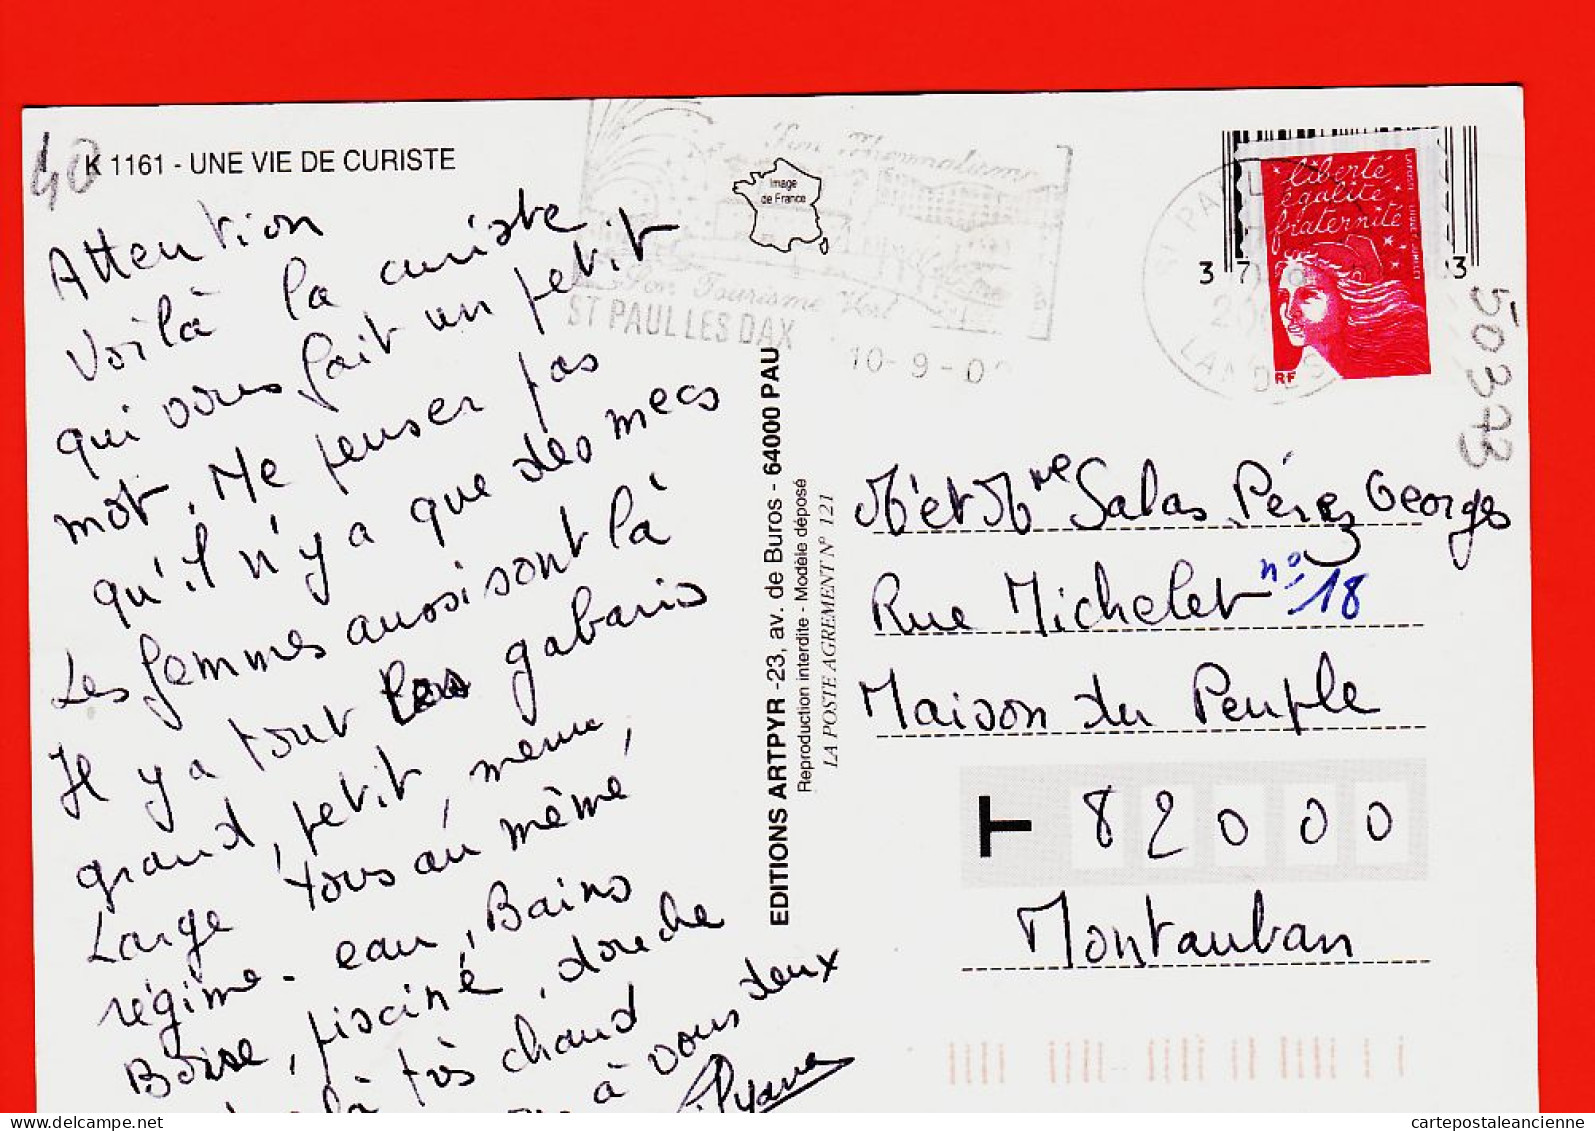 40
K 1161 - UNE VIE DE CURISTE
Attention
Voilà la curiste
qui vous fait un petit
mot. Me penser pas
qu'il n'y a que des mecs
Les femmes aussi sont là
Il y a tout les gabaris
grand, petit, menu,
Large tous au même
régime - eau, Bains
Boue, piscine, douche
là très chaud
à vous deux
Image
de France
Son Tourisme Vert
ST PAUL LES DAX
10-9-0
EDITIONS ARTPYR -23, av. de Buros - 64000 PAU
Reproduction interdite - Modèle déposé
LA POSTE AGREMENT N° 121
ST PAUL
LANDES
liberté
égalité
fraternité
LA POSTE
RF
37
3
50373
Mr et Mme Salas Pérez Georges
Rue Michelet n° 18
Maison du Peuple
T 82000
Montauban
cartepostaleancienne